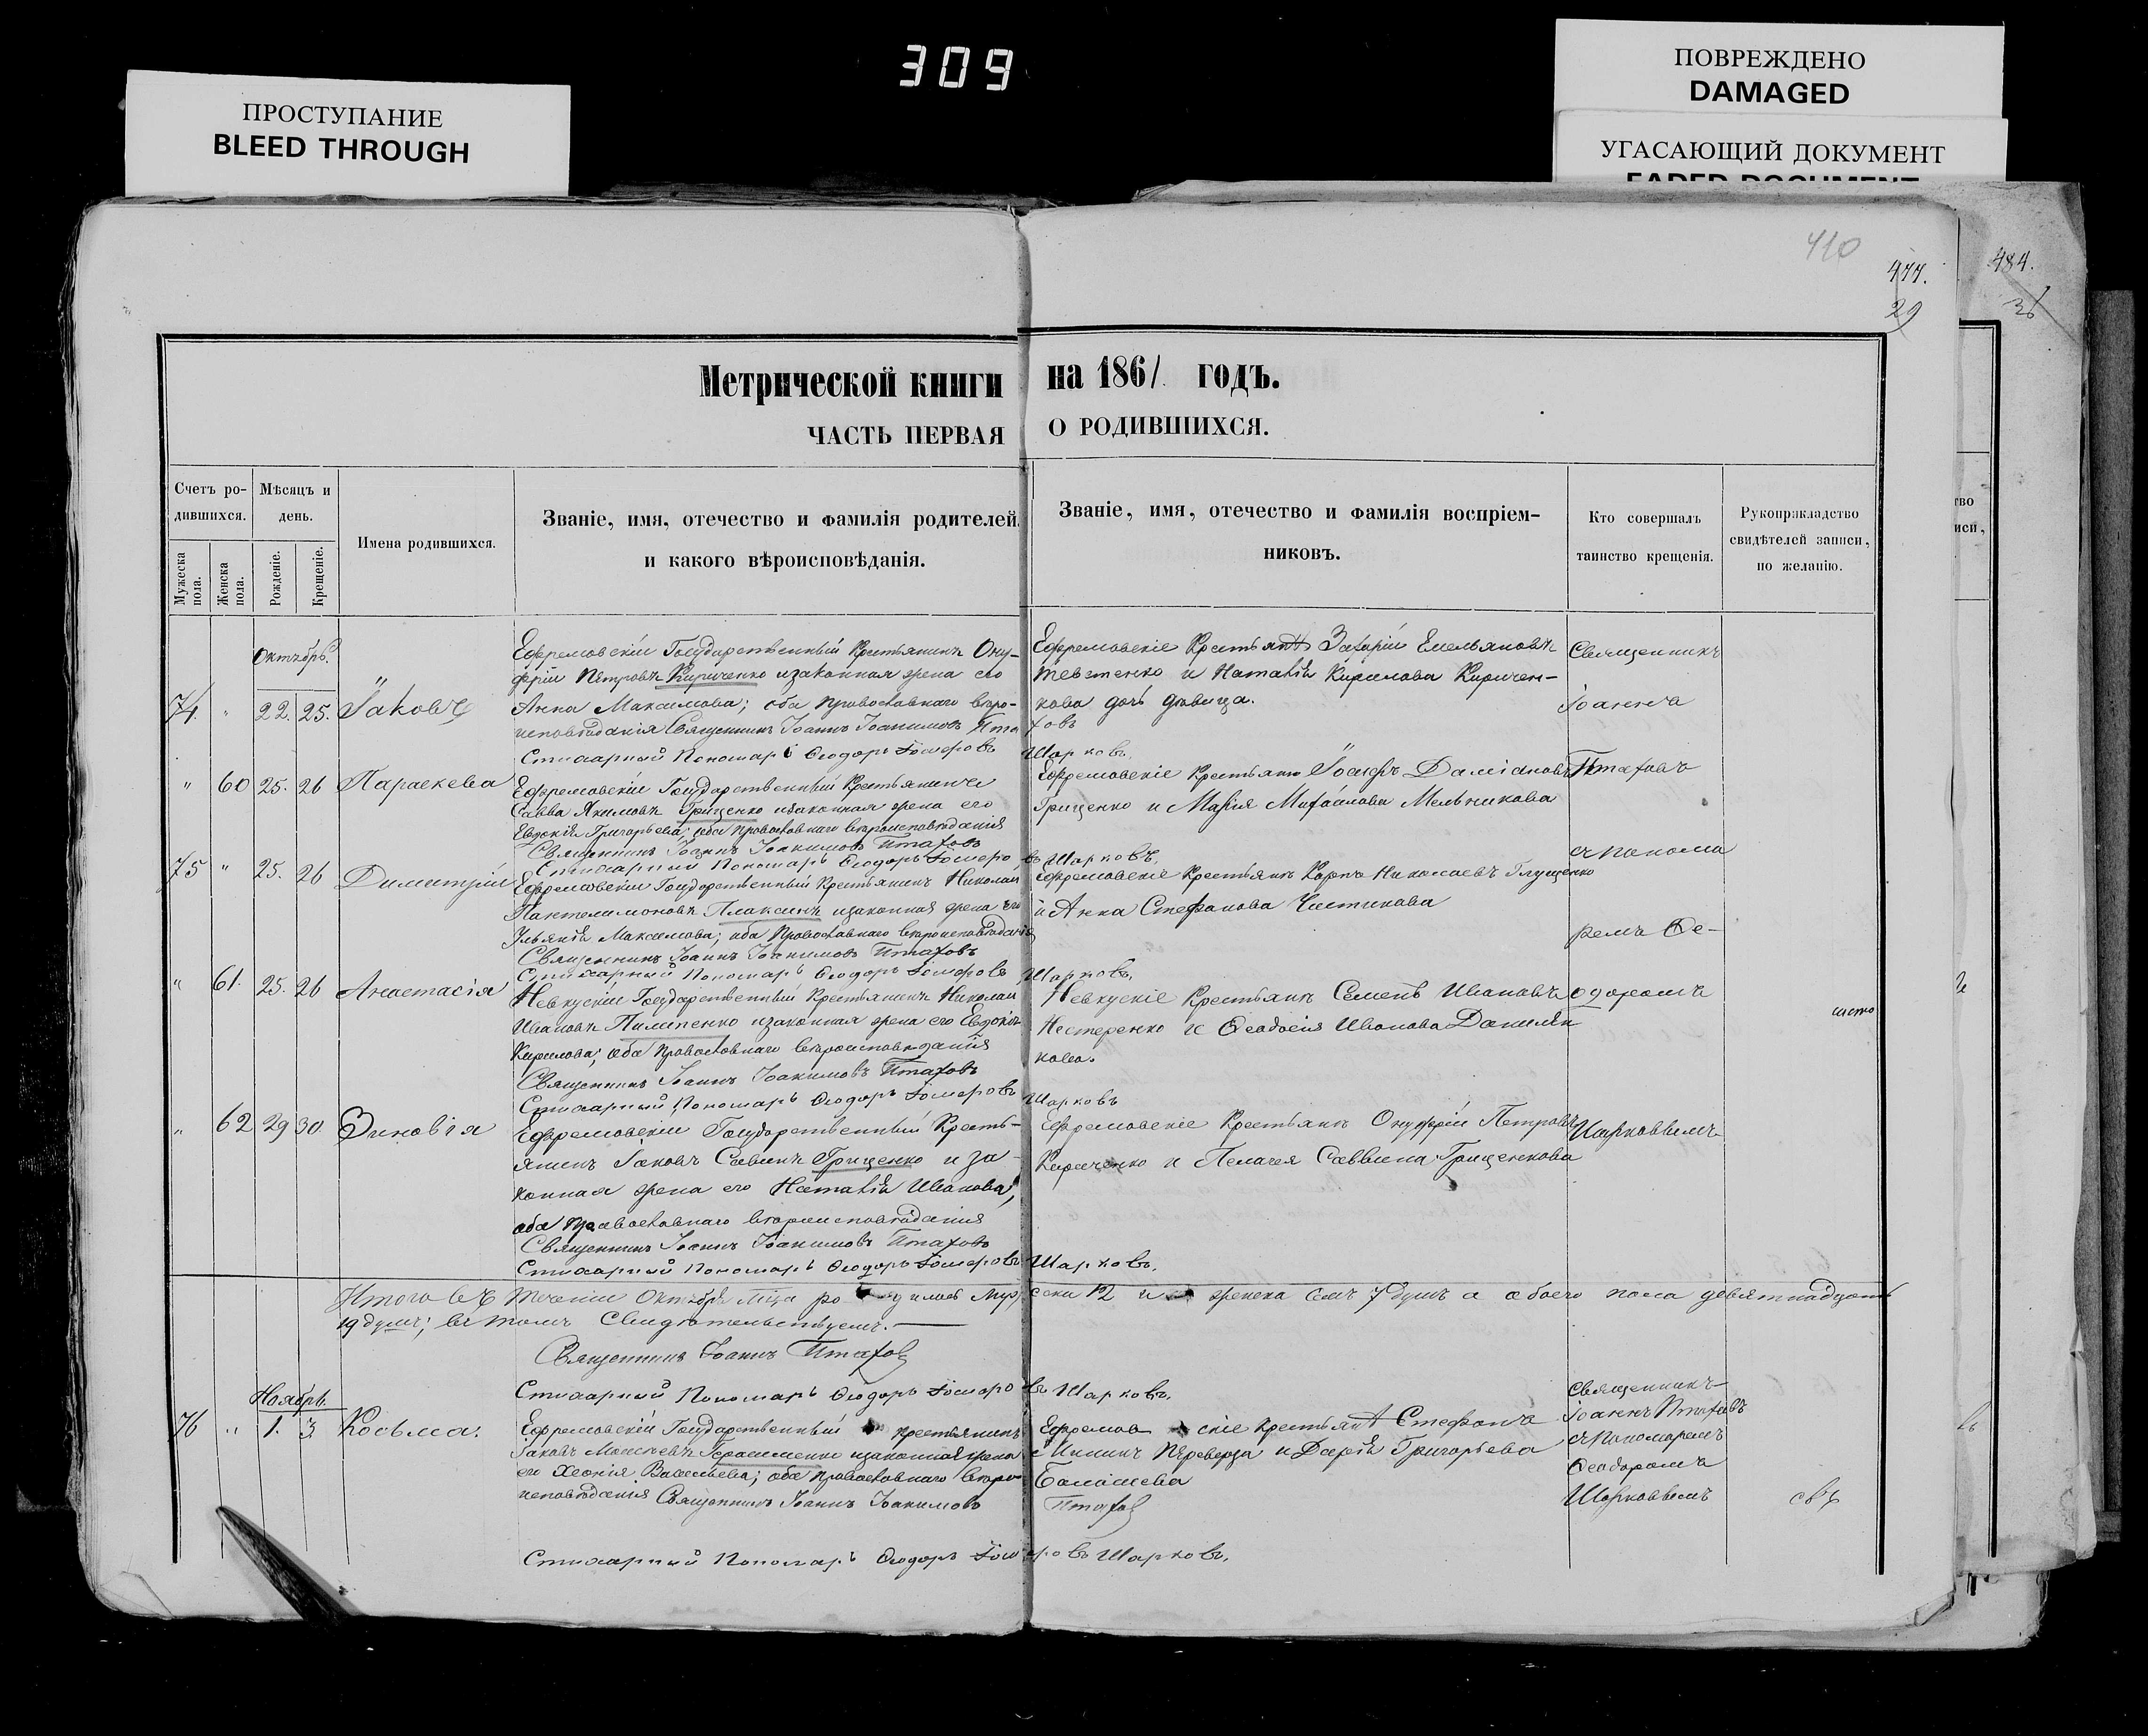 309
ПРОСТУПАНИЕ
BLEED THROUGH
ПОВРЕЖДЕНО
DAMAGED
УГАСАЮЩИЙ ДОКУМЕНТ
FADED DOCUMENT
410
477.
29
484.
36
Метрической книги на 1861 годъ.
ЧАСТЬ ПЕРВАЯ О РОДИВШИХСЯ.
Счетъ ро-
дившихся.
Мужеска пола.
Женска пола.
Мѣсяцъ и
день.
Рожденіе.
Крещеніе.
Имена родившихся.
Званіе, имя, отечество и фамилія родителей,
и какого вѣроисповѣданія.
Званіе, имя, отечество и фамилія воспріем-
никовъ.
Кто совершалъ
таинство крещенія.
Рукоприкладство
свидѣтелей записи,
по желанію.
Октябрь.
74. " 22. 25. Іаковъ
Ефремовскій Государственный Крестьянинъ Ону-
фрій Петровъ Кириченко изаконная жена его
Анна Максимова; оба православнаго вѣро-
исповѣданія Священникъ Іоаннъ Іоакимовъ Птаховъ
Стихарный Пономарь Ѳеодоръ Гомеровъ Шарковъ.
Ефремовскіе Крестьяне Захарій Емельяновъ
и Наталія Кирилова Киричен-
кова дочь дѣвица.
Священникъ
Іоаннъ
" 60 25. 26 Параскева
Ефремовскій Государственный Крестьянинъ
Савва Якимовъ Грищенко изаконная жена его
Евдокія Григорьева; оба православнаго вѣроисповѣданія
Священникъ Іоаннъ Іоакимовъ Птаховъ
Стихарный Пономарь Ѳеодоръ Гомеровъ Шарковъ.
Ефремовскіе Крестьяне Іосифъ Даміановъ
Грищенко и Марія Михайлова Мельникова
Птаховъ
съ понома
75 " 25. 26 Димитрій
Ефремовскій Государственный Крестьянинъ Николай
Пантелимоновъ Плаксинъ изаконная жена его
Ульянія Максимова; оба Православнаго вѣроисповѣданія
Священникъ Іоаннъ Іоакимовъ Птаховъ
Стихарный Пономарь Ѳеодоръ Гомеровъ Шарковъ.
Ефремовскіе Крестьяне Карпъ Николаевъ Глущенко
и Анна Стефанова Чистикова
ремъ Ѳе-
" 61. 25. 26 Анастасія
Невкускій Государственный Крестьянинъ Николай
Ивановъ Пилипенко изаконная жена его Евдокія
Кирилова; оба Православнаго вѣроисповѣданія
Священникъ Іоаннъ Іоакимовъ Птаховъ
Стихарный Пономарь Ѳеодоръ Гомеровъ Шарковъ
Невкускіе Крестьяне Семенъ Ивановъ
Нестеренко и Ѳеодосія Иванова Даниля
кова.
одоромъ
" 62 29 30. Зиновія
Ефремовскій Государственный Кресть-
янинъ Іаковъ Савинъ Грищенко и за-
конная жена его Наталія Иванова;
оба Православнаго вѣроисповѣданія
Священникъ Іоаннъ Іоакимовъ Птаховъ
Стихарный Пономарь Ѳеодоръ Гомеровъ Шарковъ.
Ефремовскіе Крестьяне Онуфрій Петровъ
Кириченко и Пелагея Саввина Грищенкова
Шарковымъ
Итого въ теченіи Октября м-ца родилось мужеска 12 и женска семъ 7 душъ а обоего пола девятнадцать
19 душъ; въ томъ Свидѣтельствуемъ.
Священникъ Іоаннъ Птаховъ
Стихарный Пономарь Ѳеодоръ Гомеровъ Шарковъ.
Ноябрь.
76 " 1. 3 Косьма.
Ефремовскій Государственный крестьянинъ
Іаковъ Герасименко изаконная жена
его Хеонія Васильева; оба православнаго вѣро-
исповѣданія Священникъ Іоаннъ Іоакимовъ Птаховъ
Стихарный Пономарь Ѳеодоръ Гомеровъ Шарковъ.
Ефремовскіе крестьяне Стефанъ
Переверза и Дарія Григорьева
Священникъ
Іоаннъ Птаховъ
съ пономаремъ
Ѳеодоромъ
Шарковымъ